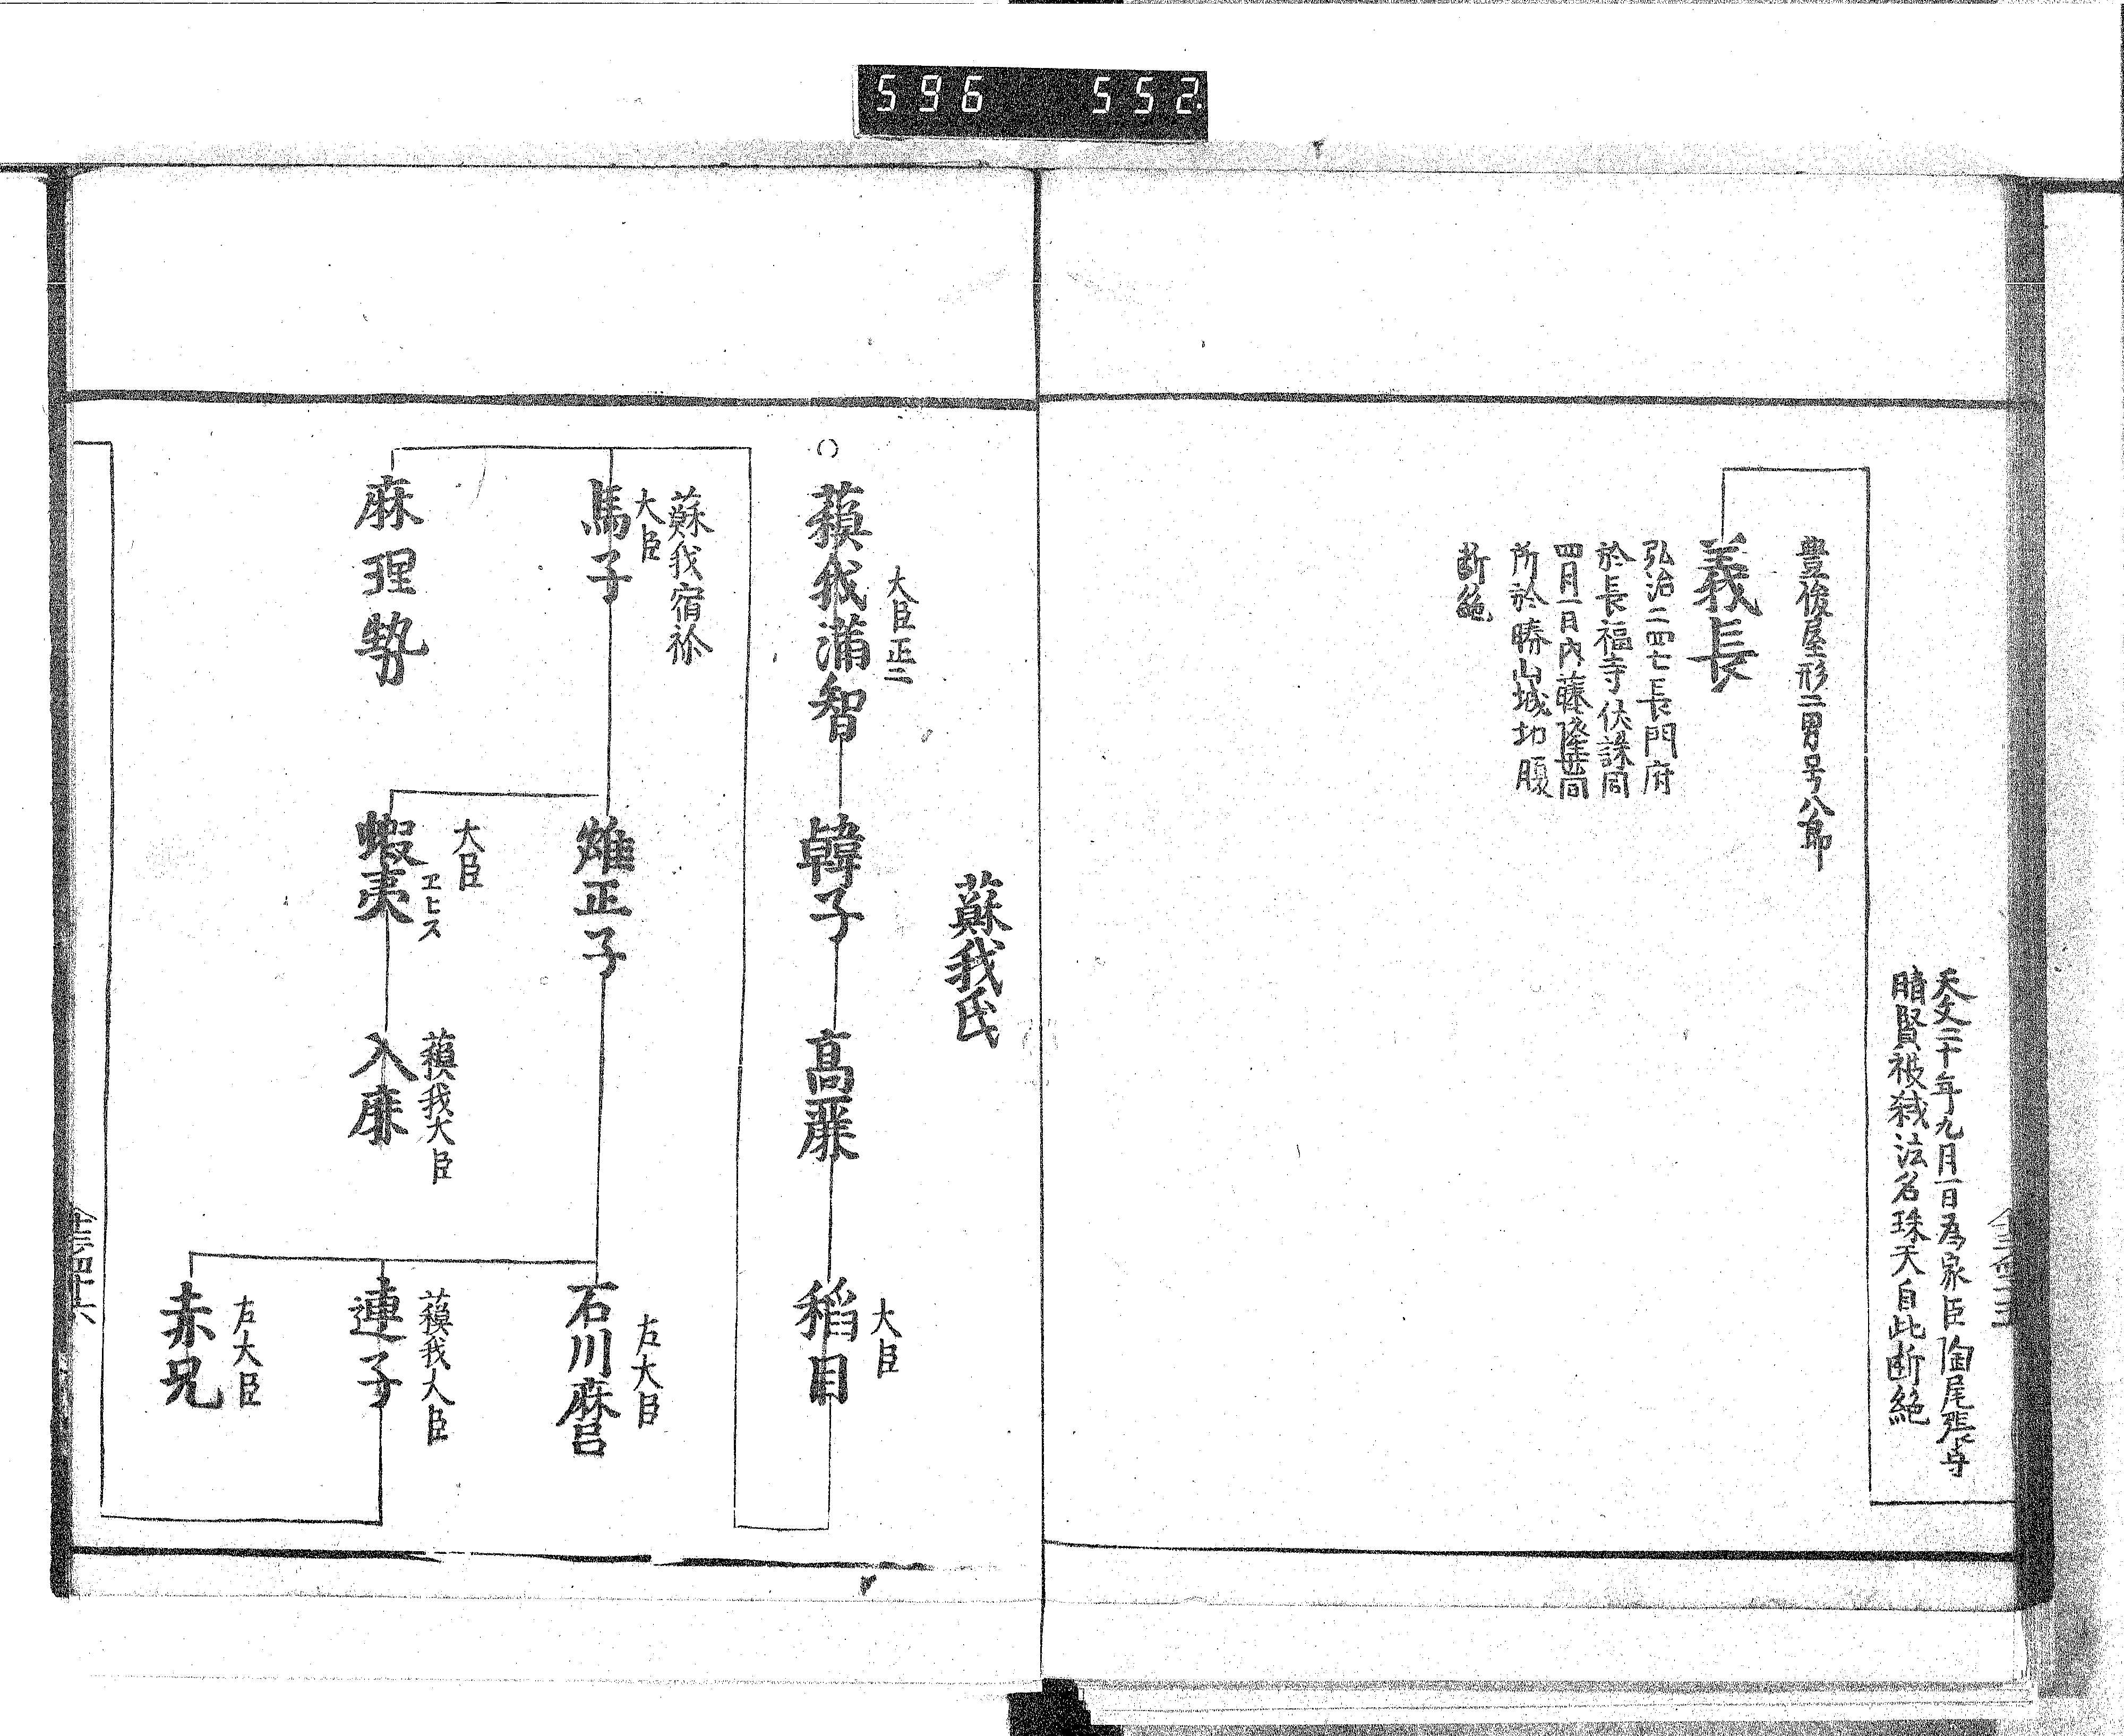 596 552
天文二十年九月一日為家臣陶尾張守
晴賢被弑法名珠天自此断絶
豊後屋形二男号八郎
義長
弘治二四七長門府
於長福寺伏誅同
四月一日内藤隆世同
所於勝山城切腹
断絶
蘇我氏
大臣正二
蘓我満智
韓子
高麗
大臣
稲目
蘇我宿祢
大臣
馬子
雄正子
左大臣
石川麿
麻理勢
大臣
蝦夷
ヱヒス
蘓我大臣
入鹿
蘓我大臣
連子
左大臣
赤兄